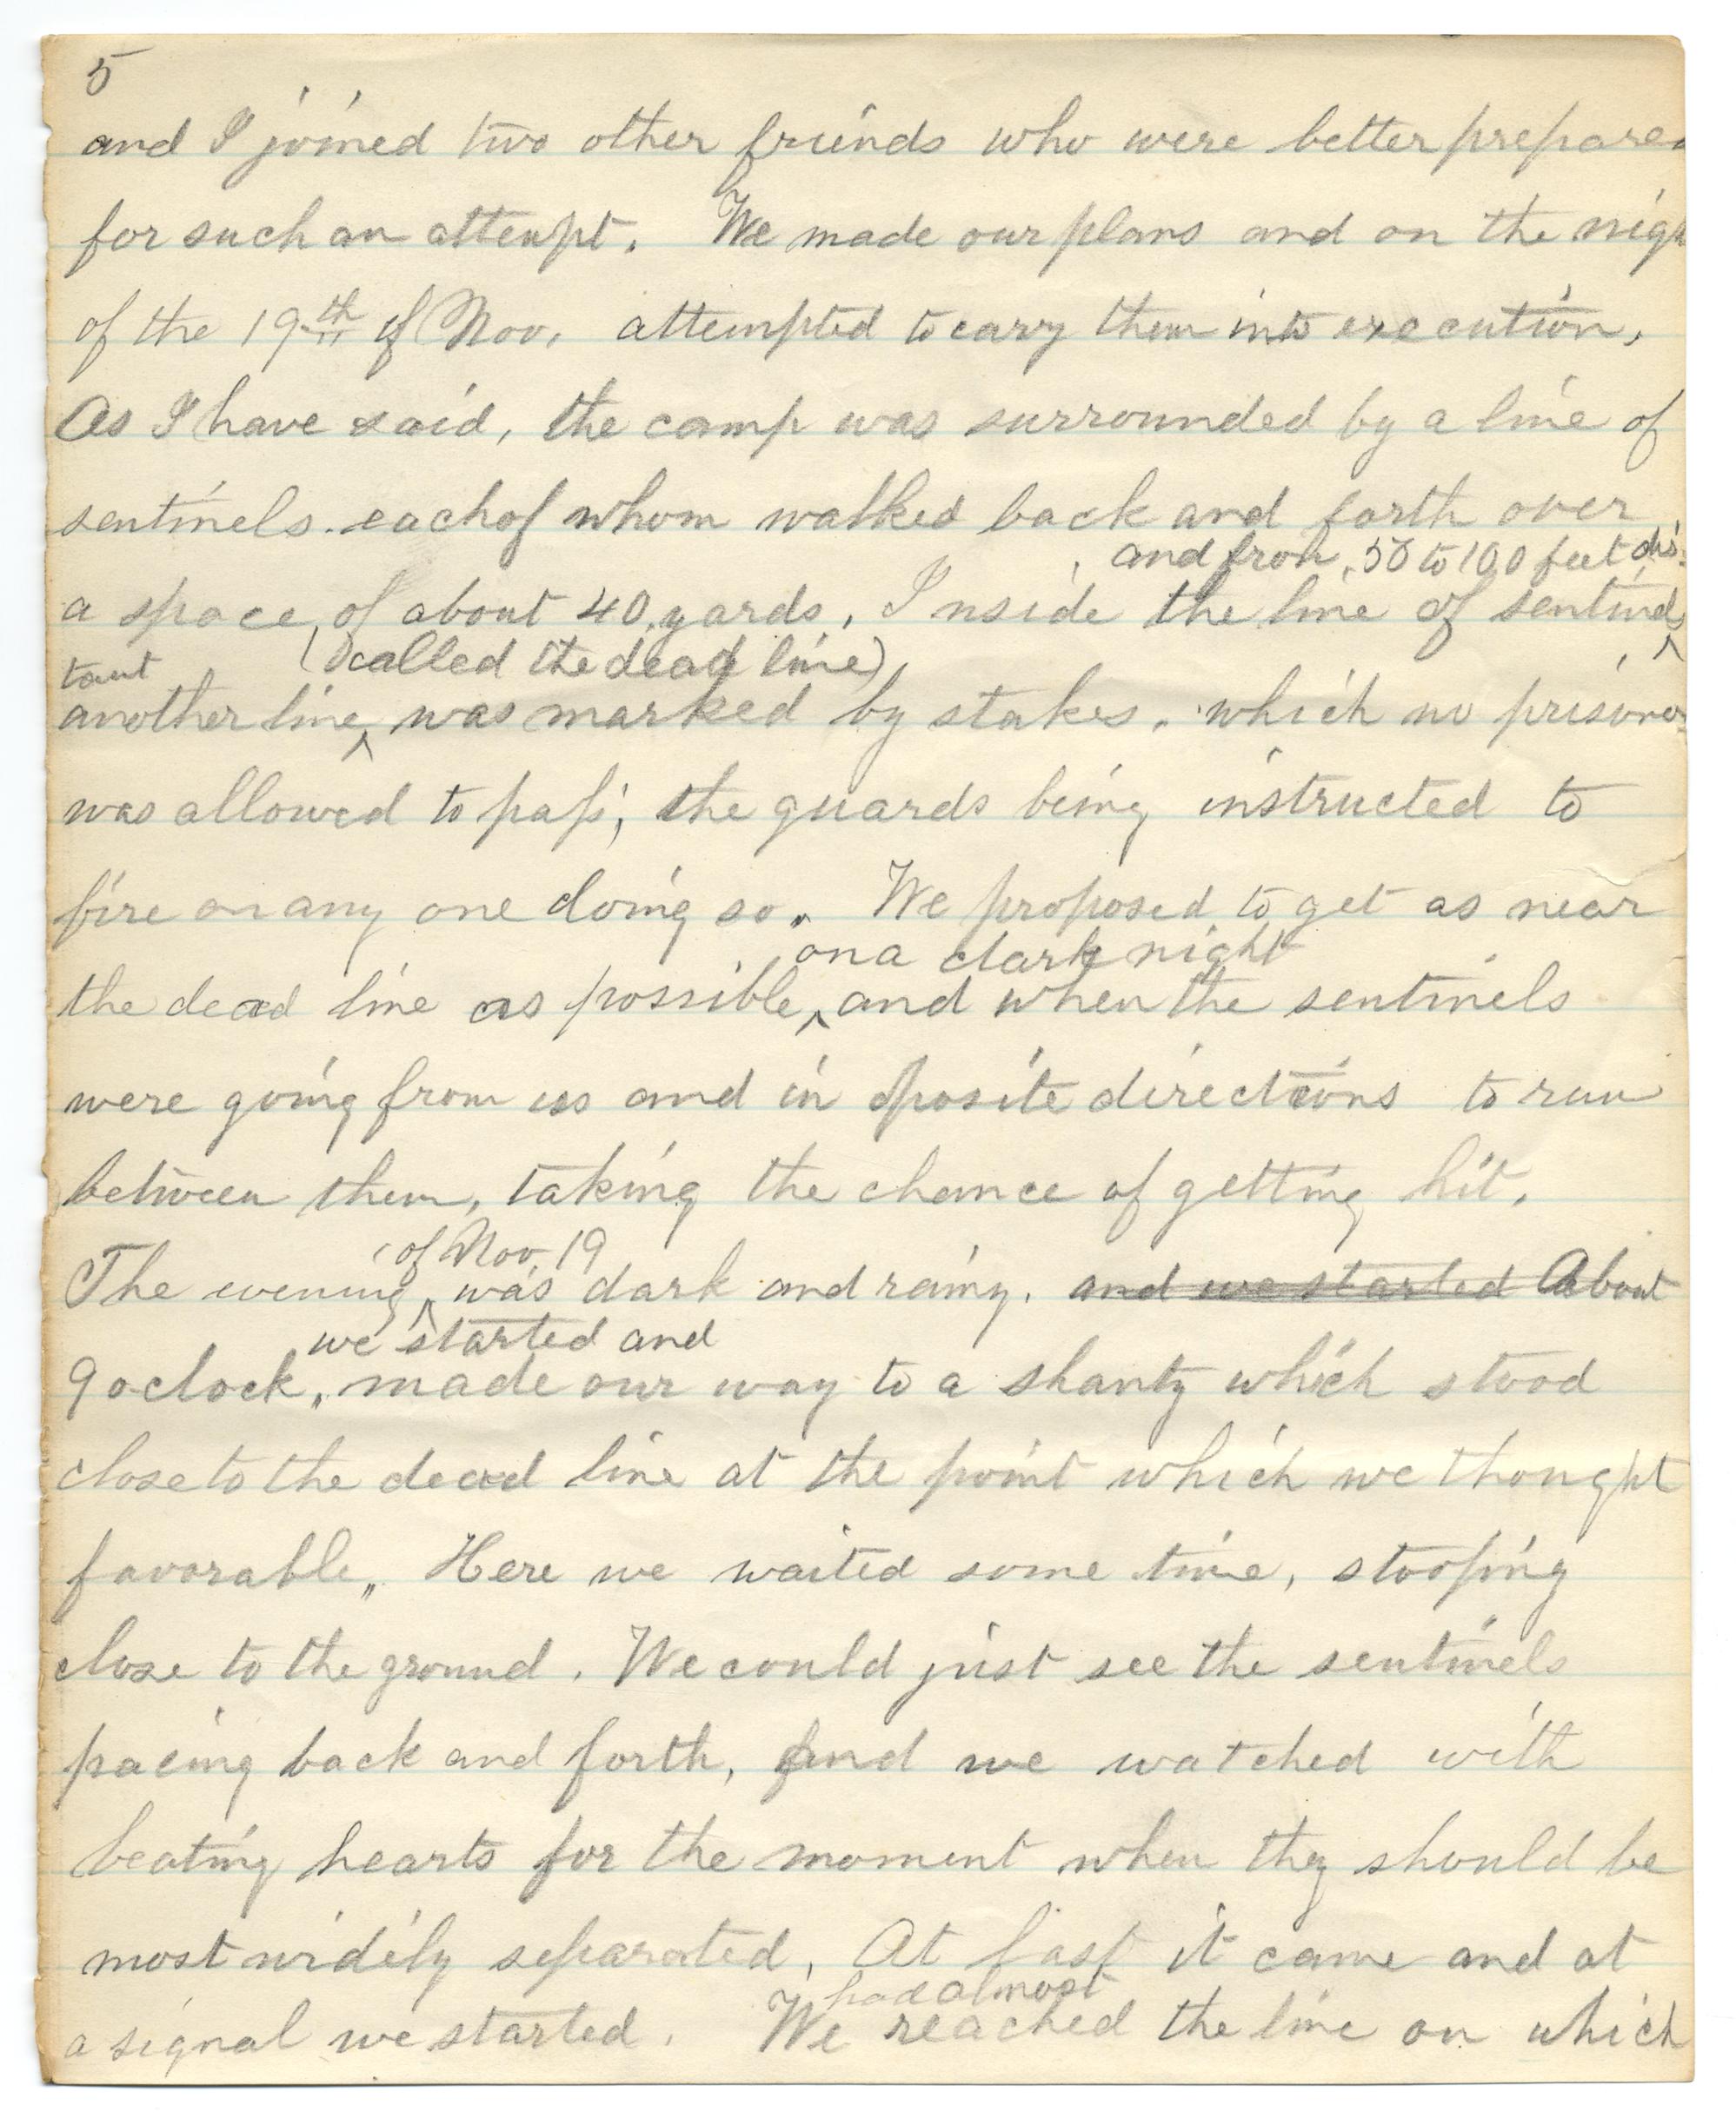 5
and I joined two other friends who were better prepared
for such an attempt. We made our plans and on the nigh
of the 19th of Nov. attempted to cary them into execution.
As I have said, the camp was surrounded by a line of
sentinels. each of whom walked back and forth over
and from 50 to 100 feet dis-
a space, of about 40 yards. Inside the line of sentinels
tant (called the dead line)
another line was marked by stakes. which no prisoner
was allowed to pass; the guards being instructed to
fire on any one doing so. We proposed to get as near
on a dark night
the dead line as possible, and when the sentinels
were going from us and in oposite directions to run
between them, taking the chance of getting hit.
of Nov. 19
The evening was dark and rainy. and we started About
we started and
9 oclock, made our way to a shanty which stood
close to the dead line at the point which we thought
favorable. Here we waited some time, stooping
close to the ground. We could just see the sentinels
pacing back and forth, and we watched with
beating hearts for the moment when they should be
most widely separated. At last it came and at
had almost
a signal we started. We reached the line on which